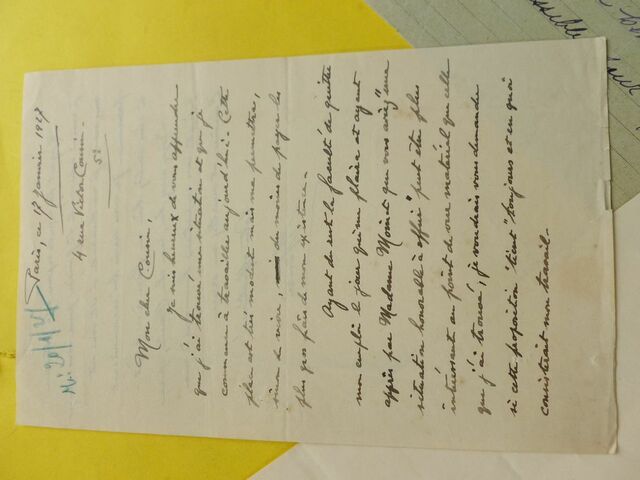 Paris, ce 17 Janvier 1927
4 rue Victor Cousin -
5e
Mon cher Cousin,
Je suis heureux de vous apprendre
que j'ai trouvé une situation et que j'ai
commencé à travailler aujourd'hui - Cette
place est très modeste mais me permettra,
sinon de vivre, du moins de payer les
plus gros frais de mon existence -
Ayant du reste la faculté de quitter
mon emploi le jour qui me plaira et ayant
appris par Madame que vous aviez "une
situation honorable à offrir" peut être plus
intéressante au point de vue matériel que celle
que j'ai trouvée, je voudrais vous demander
si cette proposition "tient" toujours et en quoi
consisterait mon travail -